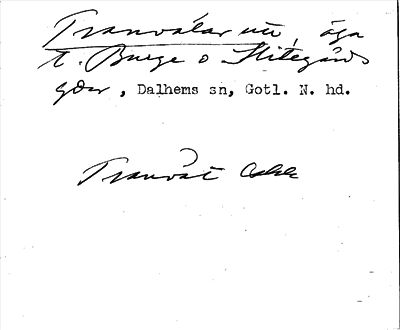 Tranvätar na, äga
t. Burge o Hitegårds
gdr, Dalhems sn, Gotl. N. hd.
Tranvät